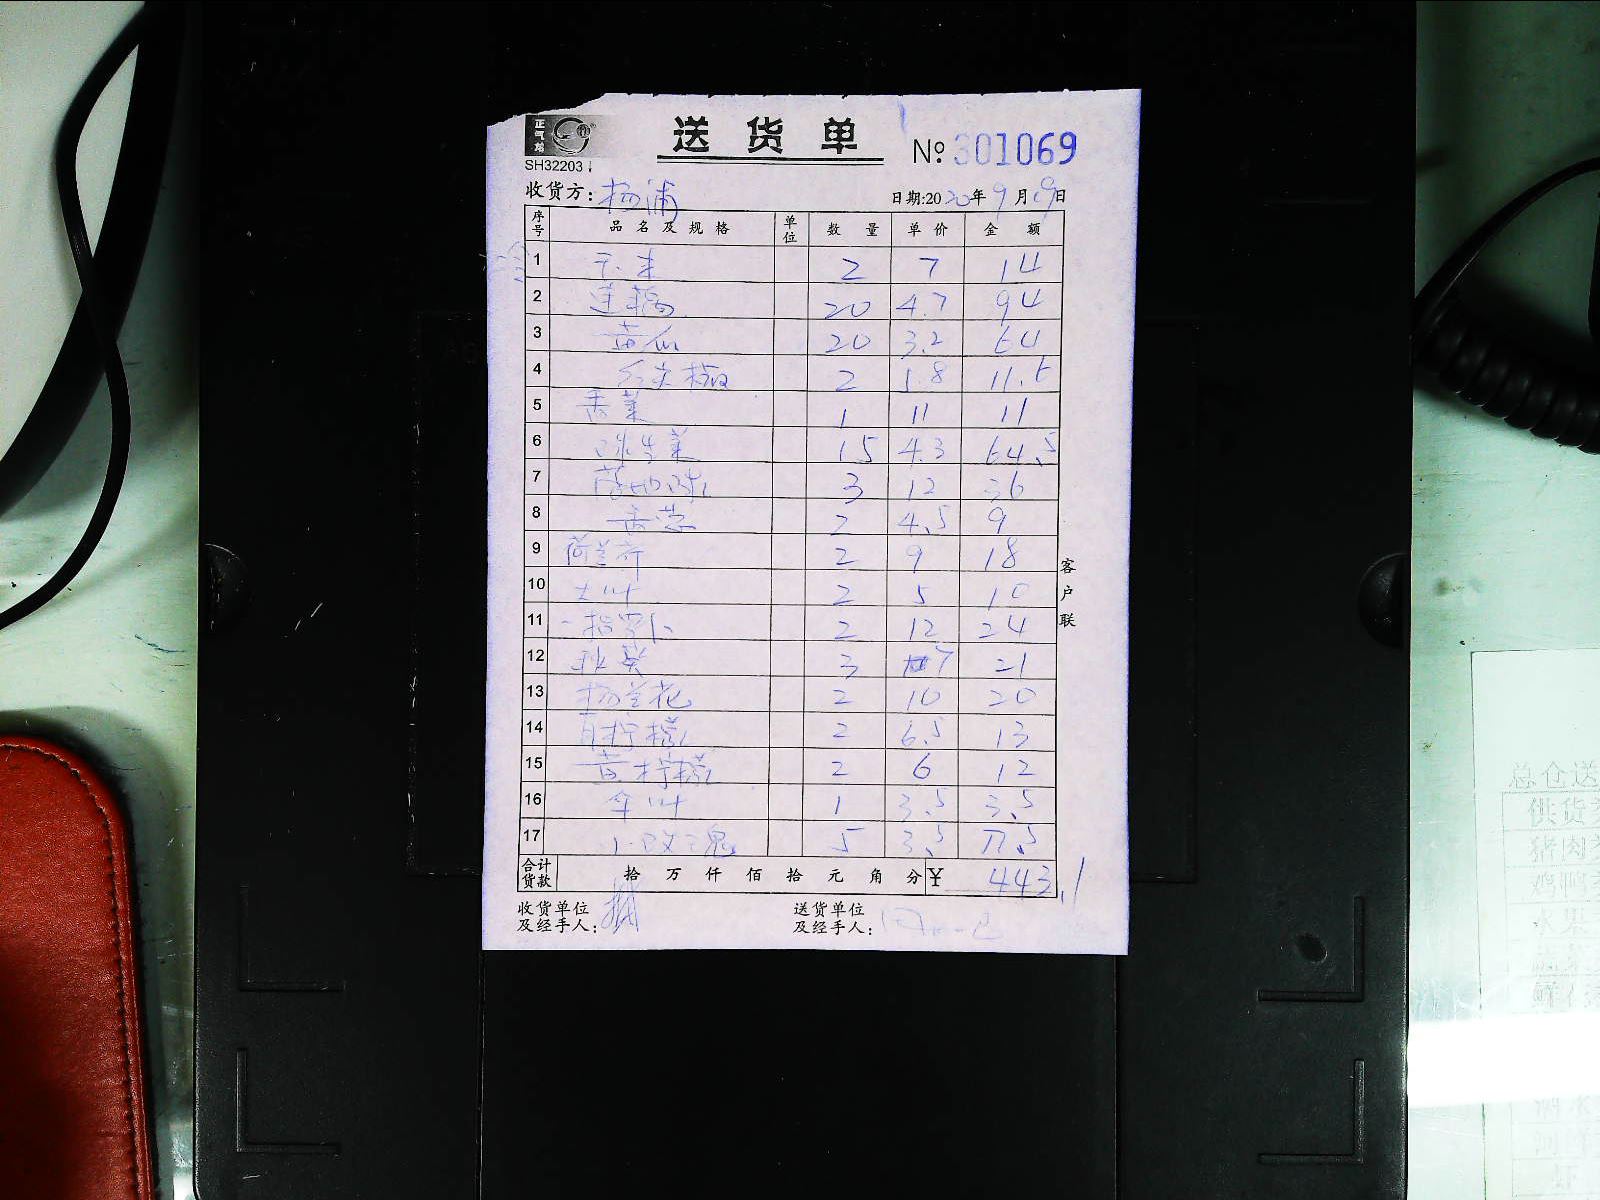 正气站
送货单
SH32203
№ 301069
收货方：杨浦
日期:2020年9月19日
序号 品名及规格 单位 数量 单价 金额
1 玉米 2 7 14
2 莲藕 20 4.7 94
3 黄瓜 20 3.2 64
4 红尖椒 2 5.8 11.6
5 香菜 1 11 11
6 球生菜 15 4.3 64.5
7 3 12 36
8 香葱 2 4.5 9
9 荷兰芹 2 9 18
10 大叶 2 5 10
11 一指 2 12 24
12 秋葵 3 7 21
13 杨兰花 2 10 20
14 青柠檬 2 6.5 13
15 黄柠檬 2 6 12
16 伞叶 1 3.5 3.5
17 小玫瑰 5 3.5 17.5
合计货款 拾 万 仟 佰 拾 元 角 分 ¥ 443.1
收货单位及经手人：
送货单位及经手人：
客户联
总仓送
供货
猪肉
鸡鸭
水果